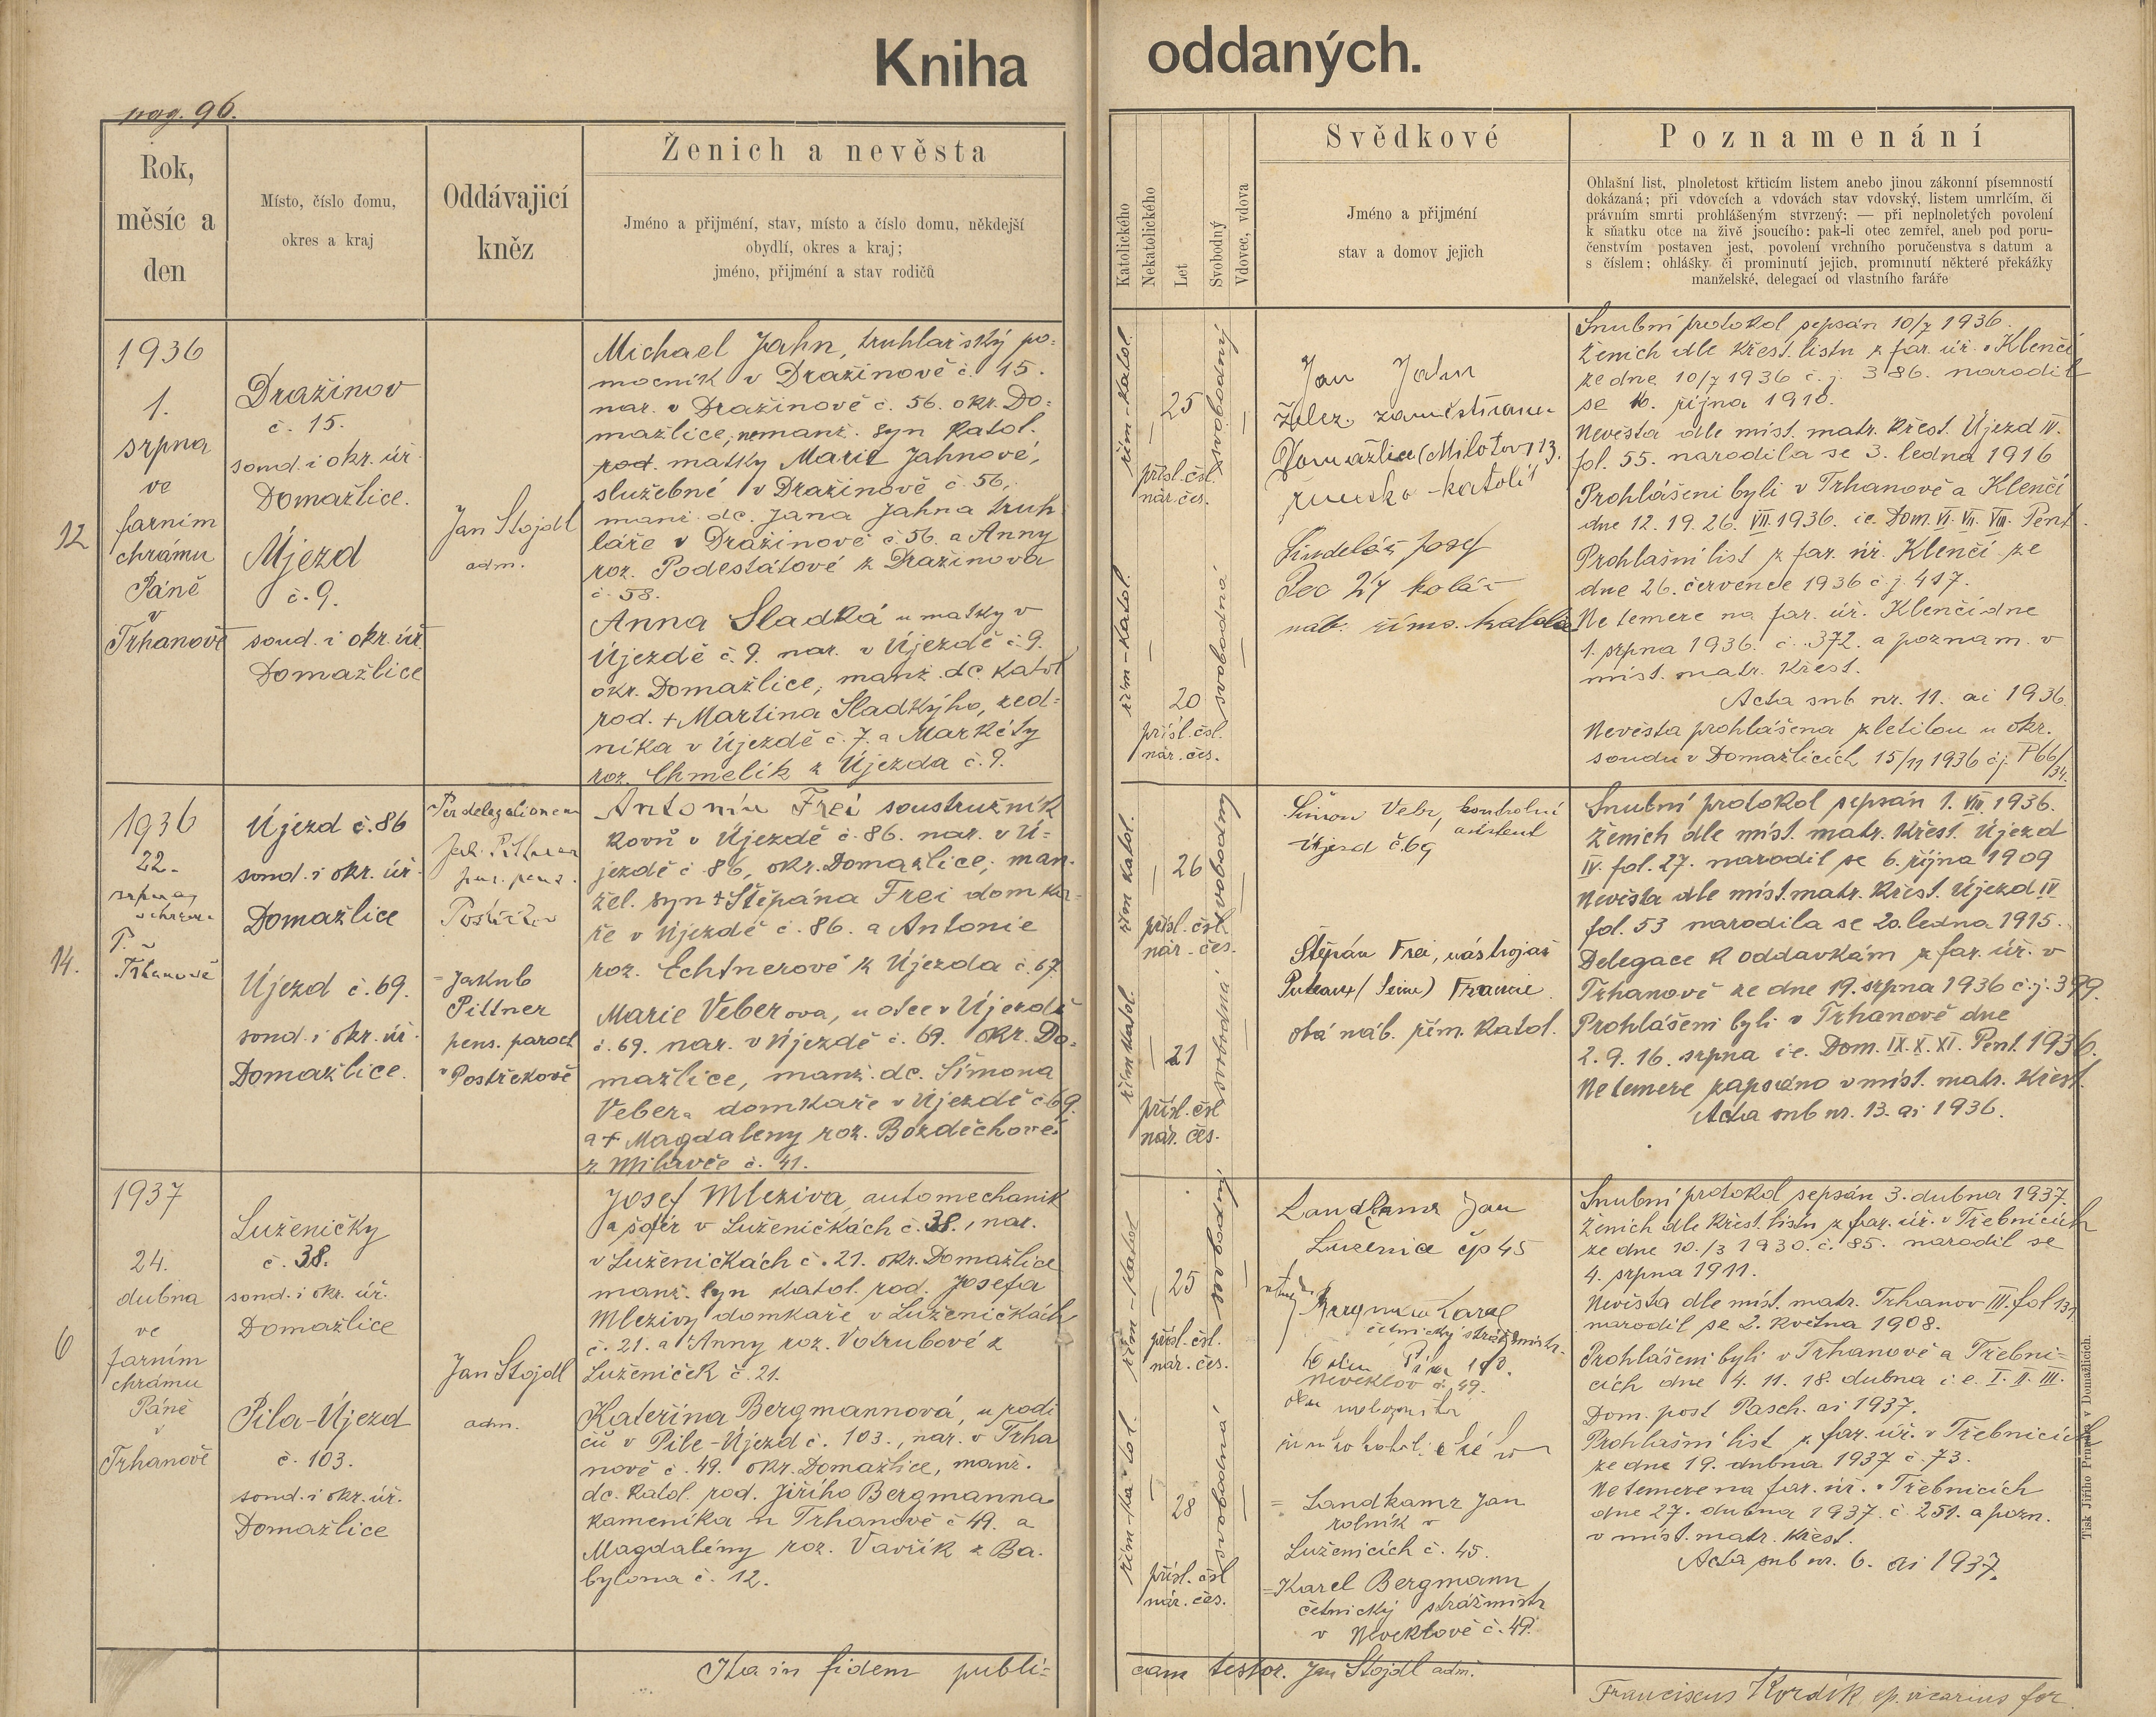 Kniha oddaných.
pag. 96.
Rok,
měsíc a
den
Místo, číslo domu,
okres a kraj
Oddávající
kněz
Ženich a nevěsta
Jméno a přijmění, stav, místo a číslo domu, někdejší
obydlí, okres a kraj;
jméno, přijmění a stav rodičů
Katolického
Nekatolického
Let
Svobodný
Vdovec, vdova
Svědkové
Jméno a přijmění
stav a domov jejich
Poznamenání
Ohlašní list, plnoletost křticím listem anebo jinou zákonní písemností
dokázaná; při vdovcích a vdovách stav vdovský, listem umrlčím, či
právním smrti prohlášeným stvrzený; — při neplnoletých povolení
k sňatku otce na živě jsoucího: pak-li otec zemřel, aneb pod poru-
čenstvím postaven jest, povolení vrchního poručenstva s datum a
s číslem; ohlášky či prominutí jejich, prominutí některé překážky
manželské, delegací od vlastního faráře
12
1936
1.
srpna
ve
farním
chrámu
Páně
v
Trhanově
Dražinov
č. 15.
soud. i okr. úř.
Domažlice.
Újezd
č. 9.
soud. i okr. úř.
Domažlice
Jan Stojdl
adm.
Michael Jahn, truhlářský po=
mocník v Dražinově č. 15.
nar. v Dražinově č. 56. okr. Do=
mažlice, nemanž. syn katol.
rod. matky Marie Jahnové,
služebné v Dražinově č. 56,
manž. dc. Jana Jahna truh
láře v Dražinově č. 56. a Anny
roz. Podestátové z Dražinova
č. 58.
Anna Sladká u matky v
Újezdě č. 9. nar. v Újezdě č. 9.
okr. Domažlice, manž. dc. katol
rod. + Martina Sladkýho, zed=
níka v Újezdě č. 7. a Markéty
roz. Chmelík z Újezda č. 9.
řím-katol.
25
svobodný
přísl. čsl.
nár. čes.
řím-katol.
20
svobodná
přísl. čsl.
nár. čes.
Jan Jahn
želez. zaměstnanec
Domažlice (Milotov 13.
římsko-katolík
Šindelář Josef
Pec 27 kolář
náb. říms.
Snubní protokol sepsán 10/7 1936.
Ženich dle křest. listu z far. úř. v Klenčí
ze dne 10/7 1936 č. j. 386. narodil
se 16. října 1910.
Nevěsta dle míst. matr. křest. Újezd IV.
fol. 55. narodila se 3. ledna 1916
Prohlášeni byli v Trhanově a Klenčí
dne 12. 19. 26. VII. 1936. i.e. Dom. VI. VII. VIII. Pent.
Prohlašní list z far. úř. Klenčí ze
dne 26. července 1936 č. j. 417.
Ne temere na far. úř. Klenčí dne
1. srpna 1936. č. 372. a poznam. v
míst. matr. křest.
Acta sub nr. 11. ai 1936.
Nevěsta prohlášena zletilou u okr.
soudu v Domažlicích 15/11 1936 čj. P66/34.
14.
1936
22.
srpna
v chrámu
P.
Trhanově
Újezd č. 86
soud. i okr. úř.
Domažlice
Újezd č. 69.
soud. i okr. úř.
Domažlice.
Per delegationem
Jak. Pittner
far. penz.
Postřekov
= Jakub
Pittner
pens. paroch
v Postřekově
Antonín Frei soustružník
kovů v Újezdě č. 86. nar. v Ú=
jezdě č. 86, okr. Domažlice, man=
žel. syn + Štěpána Frei domka=
ře v Újezdě č. 86. a Antonie
roz. Echtnerové z Újezda č. 67.
Marie Veberova, u otce v Újezdě
č. 69. nar. v Újezdě č. 69. okr. Do=
mažlice, manž. dc. Šimona
Vebera domkaře v Újezdě č. 69.
a + Magdaleny roz. Bozděchové
z Milavče č. 41.
řím katol.
26
svobodný
přísl. čsl.
nár. čes.
řím katol.
21
svobodná
přísl. čsl
nár. čes.
Šimon Vebr, kontrolní
asistent
Újezd č. 69
Štěpán Frei, nástrojař
Puteaux (Seine) Francie.
obá náb. řím. katol.
Snubní protokol sepsán 1. VIII. 1936.
Ženich dle míst. matr. křest. Újezd
IV. fol. 27. narodil se 6. října 1909
Nevěsta dle míst. matr. křest. Újezd IV
fol. 53 narodila se 20. ledna 1915.
Delegace k oddavkám z far. úř. v
Trhanově ze dne 19. srpna 1936 č. j. 399.
Prohlášeni byli v Trhanově dne
2. 9. 16. srpna i.e. Dom. IX. X. XI. Pent. 1936.
Ne temere zapsáno v míst. matr. křest.
Acta sub nr. 13. ai 1936.
6
1937
24.
dubna
ve
farním
chrámu
Páně
v
Trhanově
Luženičky
č. 38.
soud. i okr. úř.
Domažlice
Pila-Újezd
č. 103.
soud. i okr. úř.
Domažlice
Jan Stojdl
adm.
Josef Mleziva, automechanik
a šofér v Luženičkách č. 38., nar.
v Luženičkách č. 21. okr. Domažlice
manž. syn katol. rod. Josefa
Mlezivy domkaře v Luženičkách
č. 21. a + Anny roz. Votrubové z
Luženiček č. 21.
Kateřina Bergmannová, u rodi
čů v Pile-Újezd č. 103., nar. v Trha
nově č. 49. okr. Domažlice, manž.
dc. katol. rod. Jiřího Bergmanna
kameníka v Trhanově č. 49. a
Magdalény roz. Vavřík z Ba-
bylona č. 12.
řím-katol
25
svobodný
přísl. čsl.
nár. čes.
řím-katol.
28
svobodná
přísl. čsl
nár. čes.
Landkamr Jan
Luženice čp 45
Bergmann Karel
četnický strážmistr.
Neveklov č. 49.
= Landkamr Jan
rolník v
Luženicích č. 45.
= Karel Bergmann
četnický strážmistr
v Neveklově č. 49.
Snubní protokol sepsán 3. dubna 1937.
Ženich dle křest. listu z far. úř. v Třebnicích
ze dne 10./3 1930. č. 85. narodil se
4. srpna 1911.
Nevěsta dle míst. matr. Trhanov III. fol 137
narodil se 2. května 1908.
Prohlášeni byli v Trhanově a Třebni=
cích dne 4. 11. 18. dubna i.e. I. II. III.
Dom. post Pasch. ai 1937.
Prohlašní list z far. úř. v Třebnicích
ze dne 19. dubna 1937 č. 73.
Ne temere na far. úř. v Třebnicích
dne 27. dubna 1937. č. 251. a pozn.
v míst. matr. křest.
Acta sub nr. 6. ai 1937.
Ita in fidem publi=
cam testor. Jan Stojdl adm.
Franciscus Kordík ep. vicarius for.
Tisk Jiřího Prunara v Domažlicích.